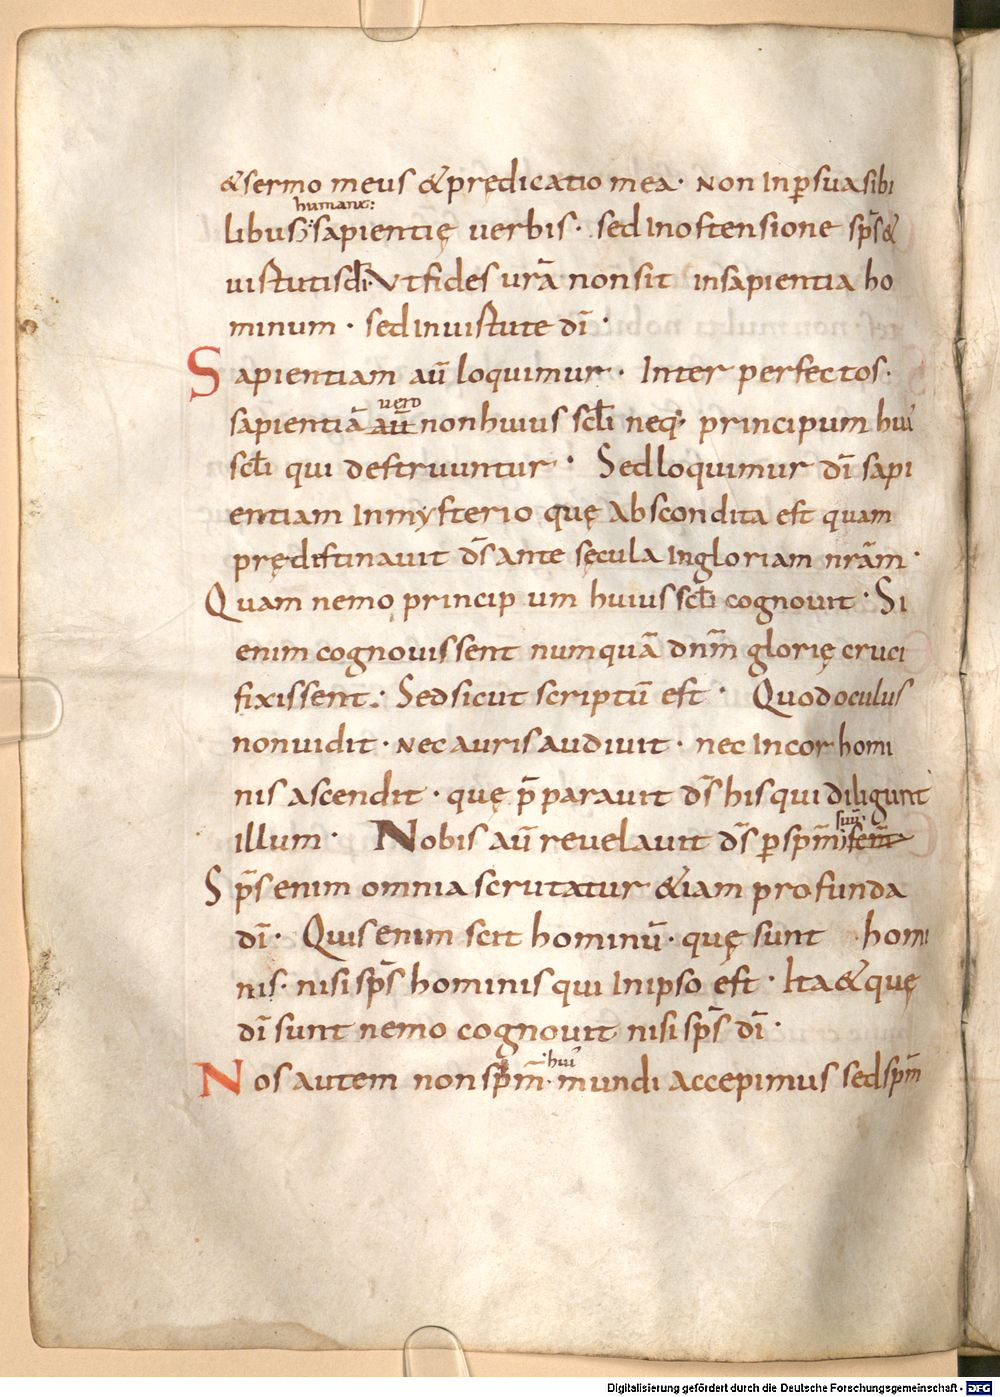 &sermo meus &prędicatio mea· Non Inp̲suasibi
humanę:
libus sapientię uerbis· sed Inostensione sp̄s&
uirtutis sc̄li· Ut fides ur̄a non sit insapientia ho
minum · sed Inuirtute dī ·
Sapientiam aū loquimur · Inter perfectos·
uero
sapientiā aū non huius sc̄li neq; principum hui'
sc̄li qui destruuntur · Sed loquimur dī sapi
entiam Inmysterio quę Abscondita est quam
prędistinauit d̄s ante sęcula Ingloriam nr̄am ·
Quam nemo principum huius sc̄li cognouit · Si
enim cognouissent numquā dn̄m glorię cruci
fixissent· Sed sicut scriptū est · Quod oculus
non uidit · Nec auris audiuit · nec Incor homi
nis ascendit · quę p̄parauit d̄s his qui diligunt
suū·
illum · Nobis aū reuelauit d̄s p̲ sp̄m
Sp̄s enim omnia scrutatur &iam profunda
dī · Quis enim scit hominū· quę sunt homi
nis· nisi sp̄s hominis qui Inipso est · Ita & quę
dī sunt nemo cognouit nisi sp̄s dī ·
hui'
Nos autem non sp̄m· mundi Accepimus sed sp̄m
Digitalisierung gefördert durch die Deutsche Forschungsgemeinschaft - DFG